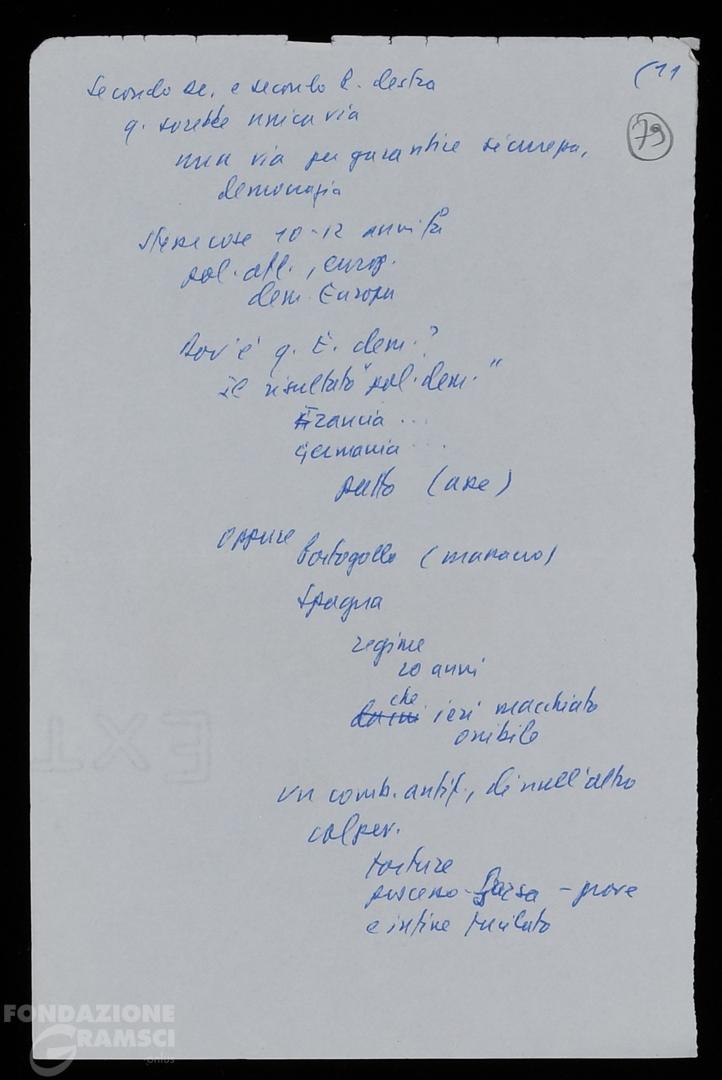 (11
79
Secondo dc. e secondo l. destra
q. sarebbe unica via
una via per garantire sicurezza,
democrazia
Stesse cose 10-12 anni fa
pol. atl., europ.
dem. Europa
Dov'è q. E. dem.?
Il risultato "pol. dem."
Francia ...
Germania ...
patto (asse)
oppure
Portogallo
Spagna
regime
20 anni
che
ieri macchiato
orribile
Un comb. antif., di null'altro
colpev.
torture
processo-farsa - prove
e infine fucilato
EXT
FONDAZIONE
GRAMSCI
onlus